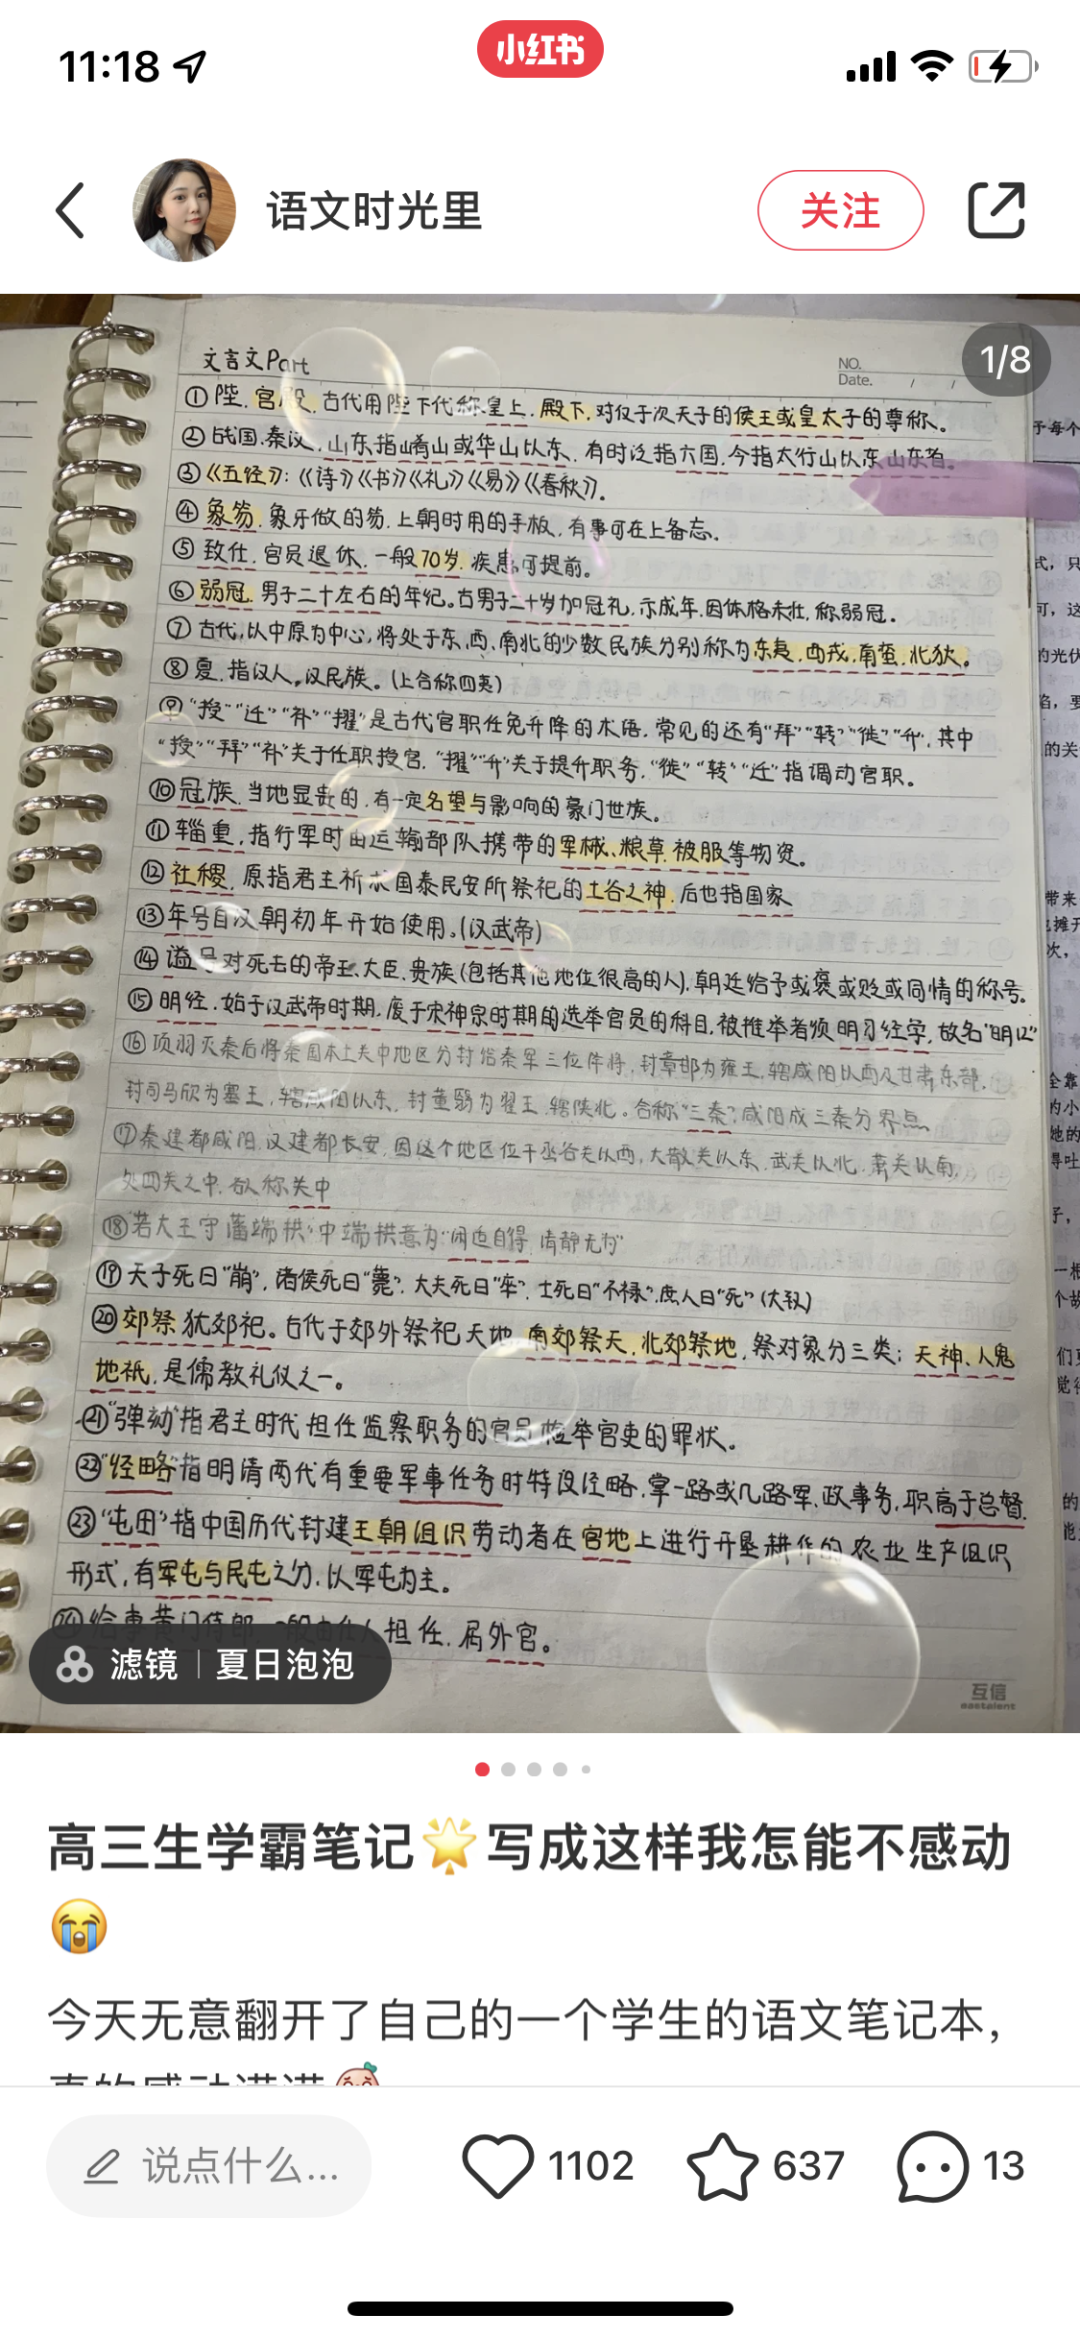 11:18
小红书
语文时光里
关注
1/8
文言文Part
NO.
Date. / /
①陛,宫殿,古代用陛下代称皇上,殿下,对仅于次天子的侯王或皇太子的尊称。
②战国.秦汉,山东指崤山或华山以东,有时泛指六国,今指太行山以东山东省。
③《五经》:《诗》《书》《礼》《易》《春秋》。
④象笏,象牙做的笏,上朝时用的手板,有事可在上备忘。
⑤致仕,官员退休,一般70岁,疾患可提前。
⑥弱冠,男子二十左右的年纪。古男子二十岁加冠礼,示成年,因体格未壮,称弱冠。
⑦古代,以中原为中心,将处于东,西,南北的少数民族分别称为东夷,西戎,南蛮,北狄。
⑧夏,指汉人,汉民族。(上合称四夷)
⑨"授""迁""补""擢"是古代官职任免升降的术语,常见的还有"拜""转""徙""升",其中
"授""拜""补"关于任职授官,"擢""升"关于提升职务,"徙""转""迁"指调动官职。
⑩冠族,当地显贵的,有一定名望与影响的豪门世族。
⑪辎重,指行军时由运输部队携带的军械、粮草,被服等物资。
⑫社稷,原指君主祈求国泰民安所祭祀的土谷之神,后也指国家
⑬年号自汉朝初年开始使用。(汉武帝)
⑭谥号对死去的帝王、大臣、贵族(包括其他地位很高的人),朝廷给予或褒或贬或同情的称号。
⑮明经,始于汉武帝时期,废于宋神宗时期的选举官员的科目,被推举者须明习经学,故名"明经"
⑯项羽灭秦后将秦国本土关中地区分封给秦军三位降将,封章邯为雍王,辖咸阳以西及甘肃东部,
封司马欣为塞王,辖咸阳以东,封董翳为翟王,辖陕北。合称"三秦",咸阳成三秦分界点
⑰秦建都咸阳,汉建都长安,因这个地区位于函谷关以西,大散关以东,武关以北,萧关以南,
处四关之中,故称关中
⑱"若大王守藩端拱"中端拱意为"闲适自得,清静无为"
⑲天子死曰"崩",诸侯死曰"薨",大夫死曰"卒",士死曰"不禄",庶人曰"死"
⑳郊祭犹郊祀。古代于郊外祭祀天地,南郊祭天,北郊祭地,祭对象分三类:天神、人鬼
地祇,是儒教礼仪之一。
㉑"弹劾"指君主时代担任监察职务的官员检举官吏的罪状。
㉒"经略"指明清两代有重要军事任务时特设经略,掌一路或几路军、政事务,职高于总督.
㉓"屯田"指中国历代封建王朝组织劳动者在官地上进行开垦耕作的农业生产组织
形式,有军屯与民屯之分,以军屯为主。
㉔给事黄门侍郎 担任,属外官。
滤镜 | 夏日泡泡
互信
eastalent
高三生学霸笔记🌟写成这样我怎能不感动
😭
今天无意翻开了自己的一个学生的语文笔记本,
真的感动满满
说点什么...
1102
637
13